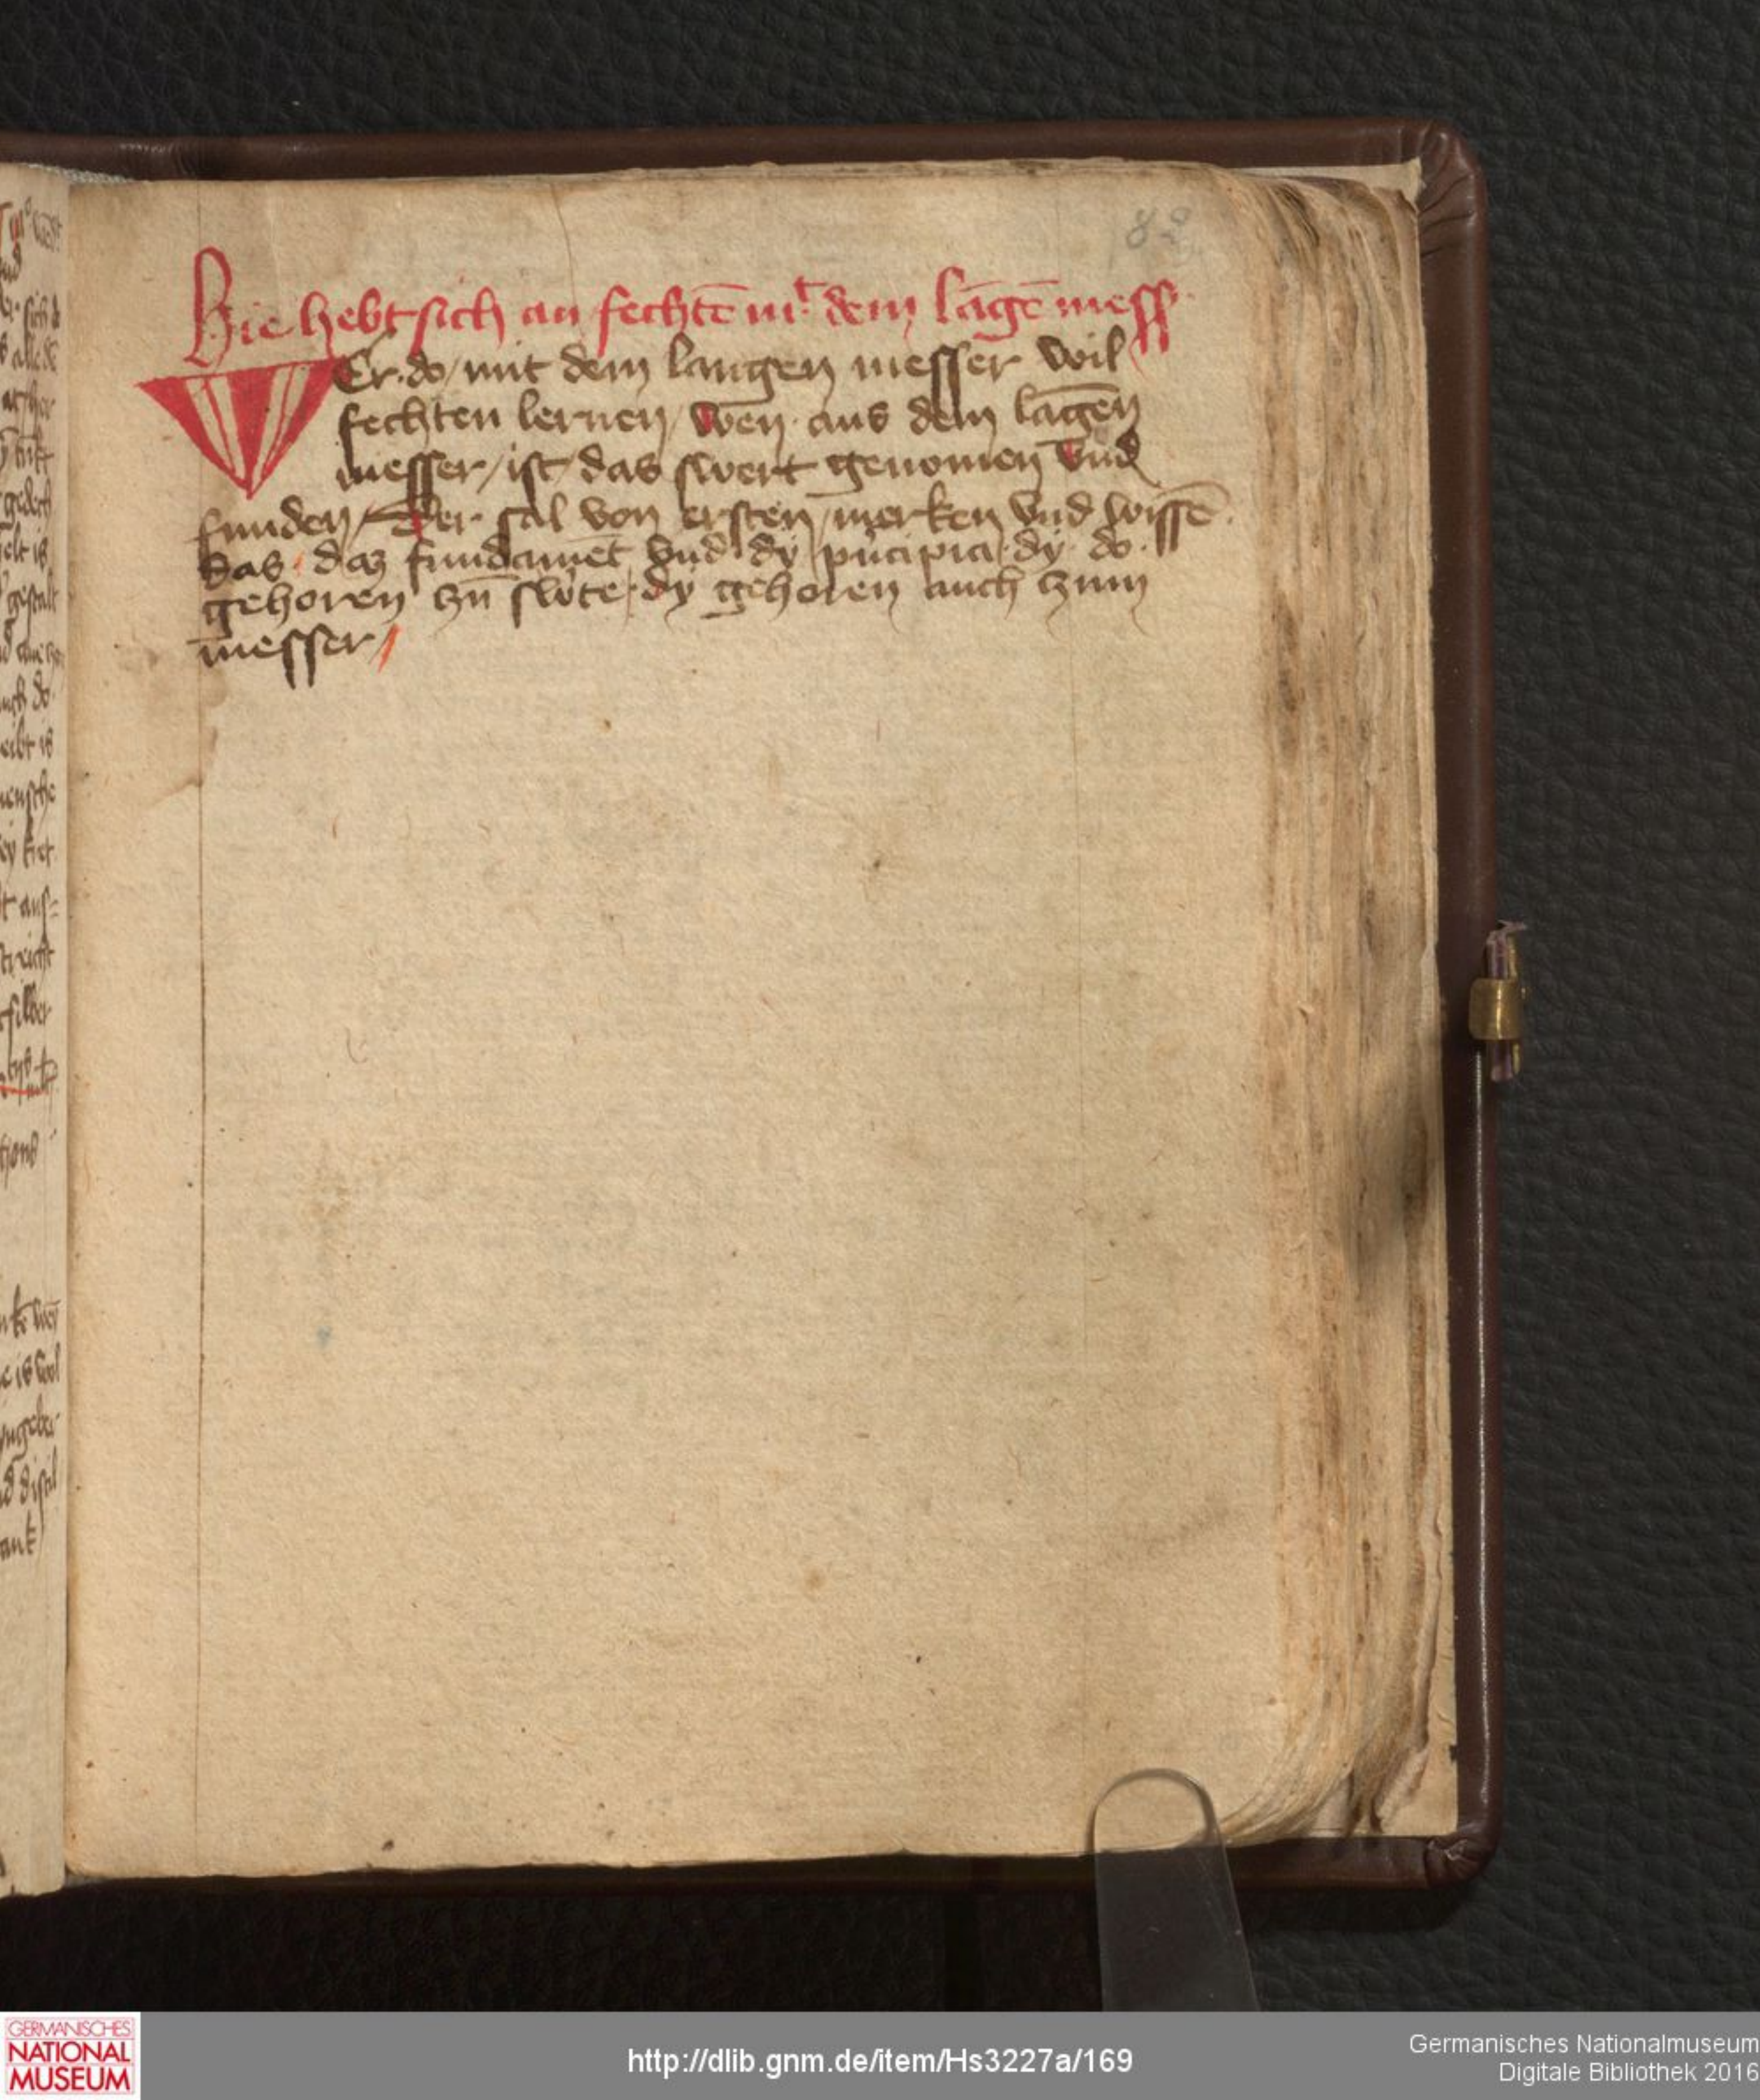 82
Hie hebt sich an fechtē mͭ dem lāgē mess
WEr do / mit dem langen messer wil
fechten lernen / wen aus dem lāgen
messer / ist das swert genomen vnd
funden / Der sal von ersten / merken vnd wissē
das / das fundamēt vnd dy pͥncipia dy do
gehoren czū swͤte / dy gehoren auch czum
messer /
GERMANISCHES
NATIONAL
MUSEUM
http://dlib.gnm.de/item/Hs3227a/169
Germanisches Nationalmuseum
Digitale Bibliothek 2016